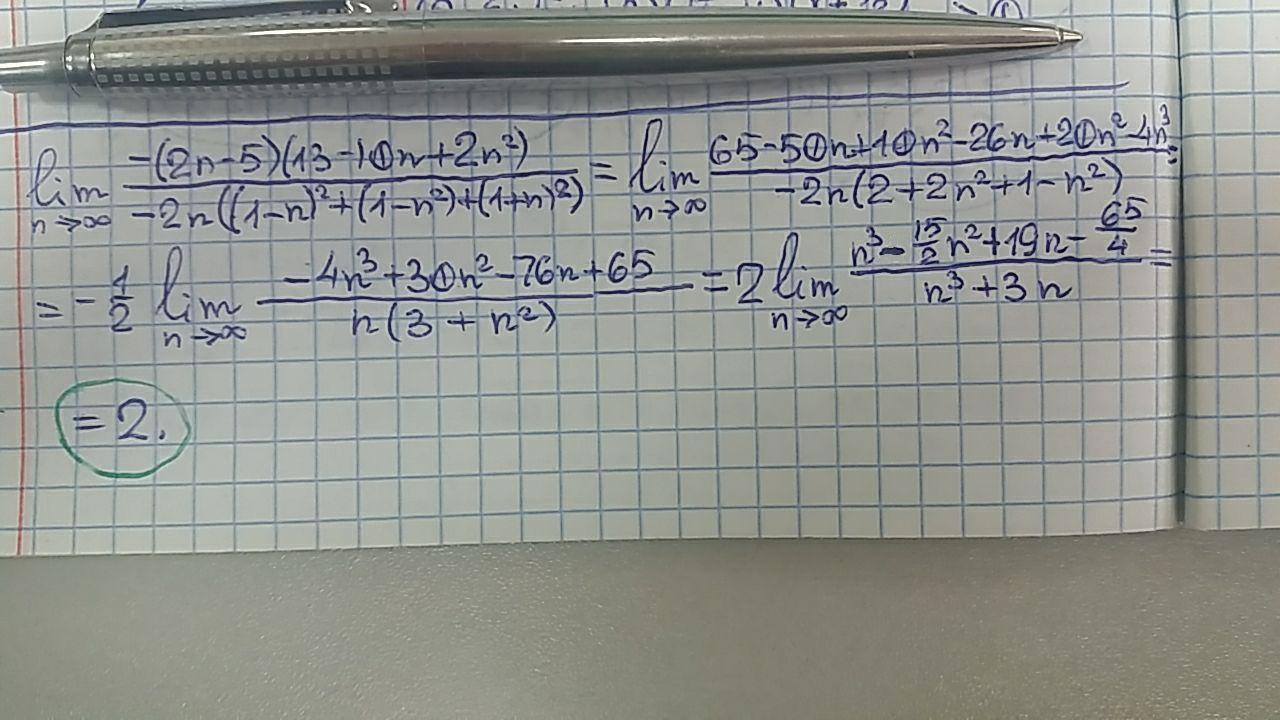 lim n→∞ -(2n-5)(13-10n+2n²) / -2n((1-n)²+(1-n²)+(1+n)²) = lim n→∞ 65-50n+10n²-26n+20n²-4n³ / -2n(2+2n²+1-n²) =
= -1/2 lim n→∞ -4n³+30n²-76n+65 / n(3+n²) = 2 lim n→∞ n³-15/2n²+19n-65/4 / n³+3n =
= 2.